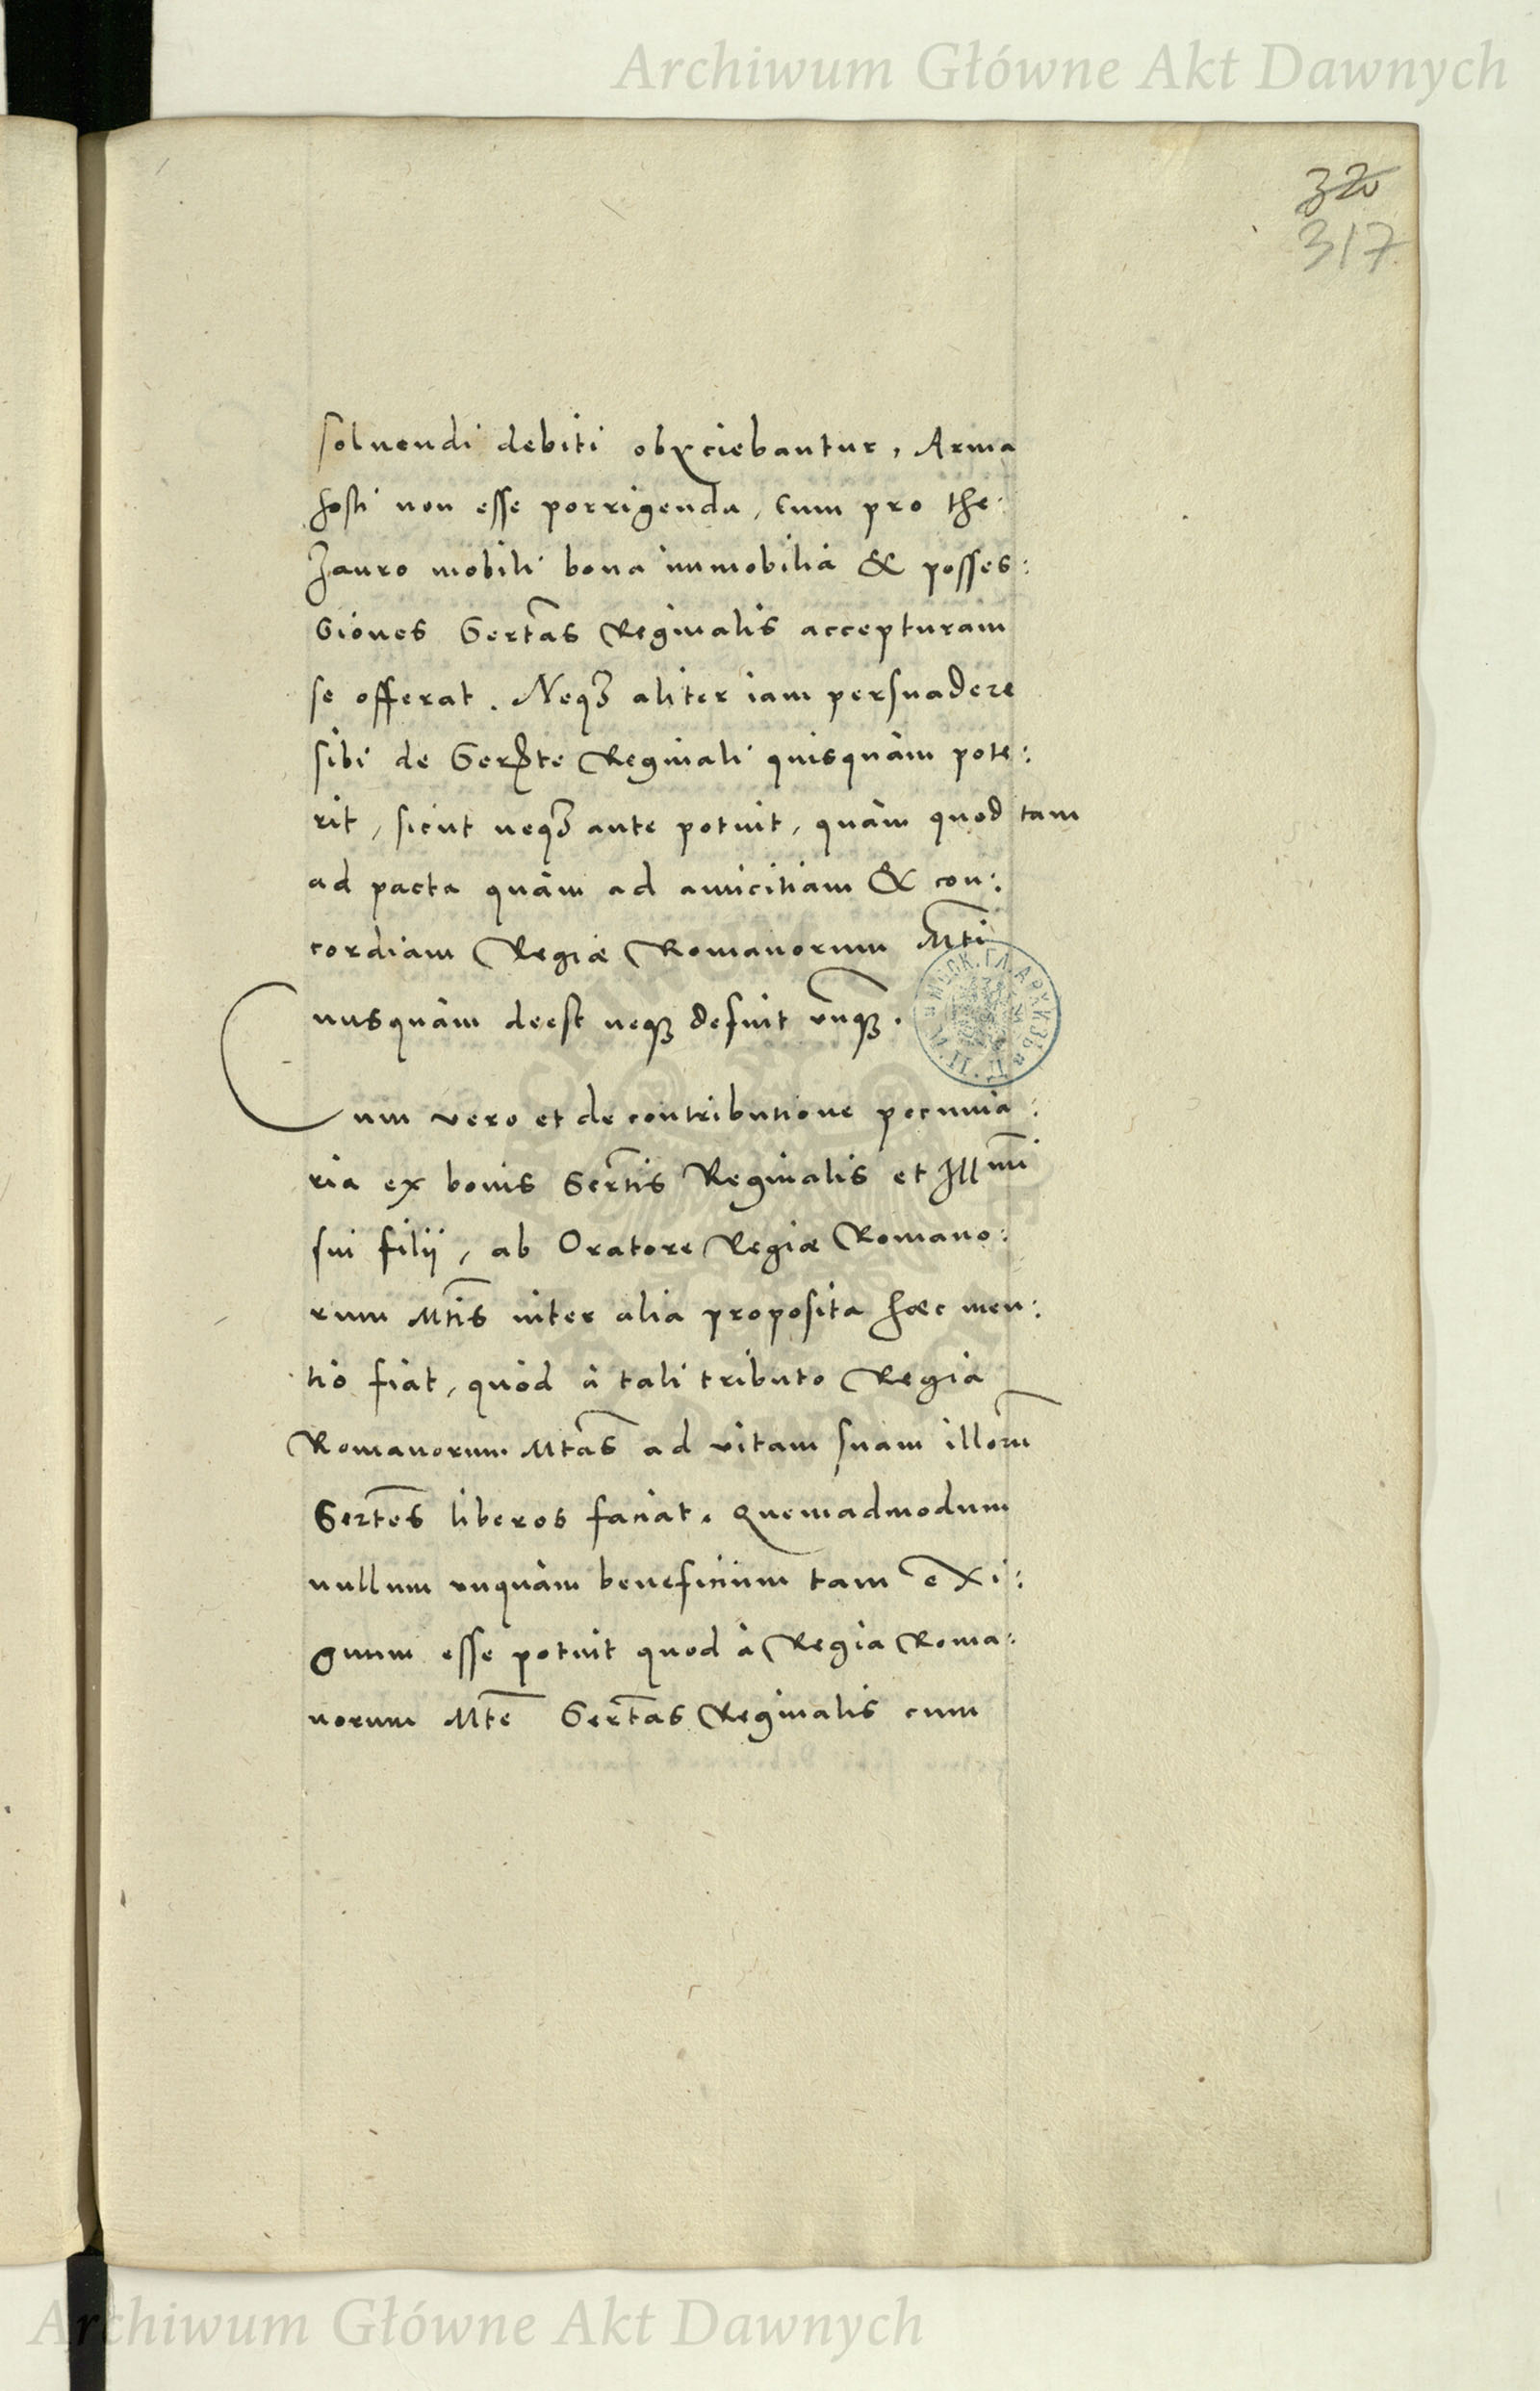 Archiwum Główne Akt Dawnych
320
317
soluendi debiti obyciebantur, Arma
hosti non esse porrigenda, cum pro the:
zauro mobili bona immobilia & posses:
siones Sertas Reginalis accepturam
se offerat. Neqз aliter iam persuadere
sibi de Serte Reginali quisquàm pote:
rit, sicut neqз ante potuit, quàm quod tam
ad pacta quàm ad amicitiam & con:
cordiam Regiæ Romanorum Mti
nusquàm deest neqз defuit vnqз.
Cum vero et de contributione pecunia:
ria ex bonis Sertis Reginalis et Illmi
sui filij, ab Oratore Regiæ Romano:
rum Mtis inter alia proposita hæc men:
tio fiat, quòd à tali tributo Regia
Romanorum Mtas ad vitam suam illorum
Sertes liberos faciat. Quemadmodum
nullum vnquàm beneficium tam exi:
guum esse potuit quod à Regia Roma:
norum Mte Sertas Reginalis cum
Archiwum Główne Akt Dawnych